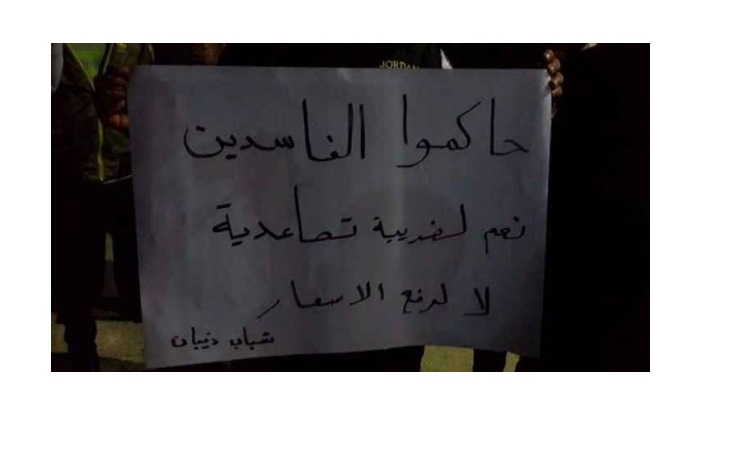 JORDAN
حاكموا الفاسدين
نعم لضريبة تصاعدية
لا لرفع الاسعار
شباب ذيبان